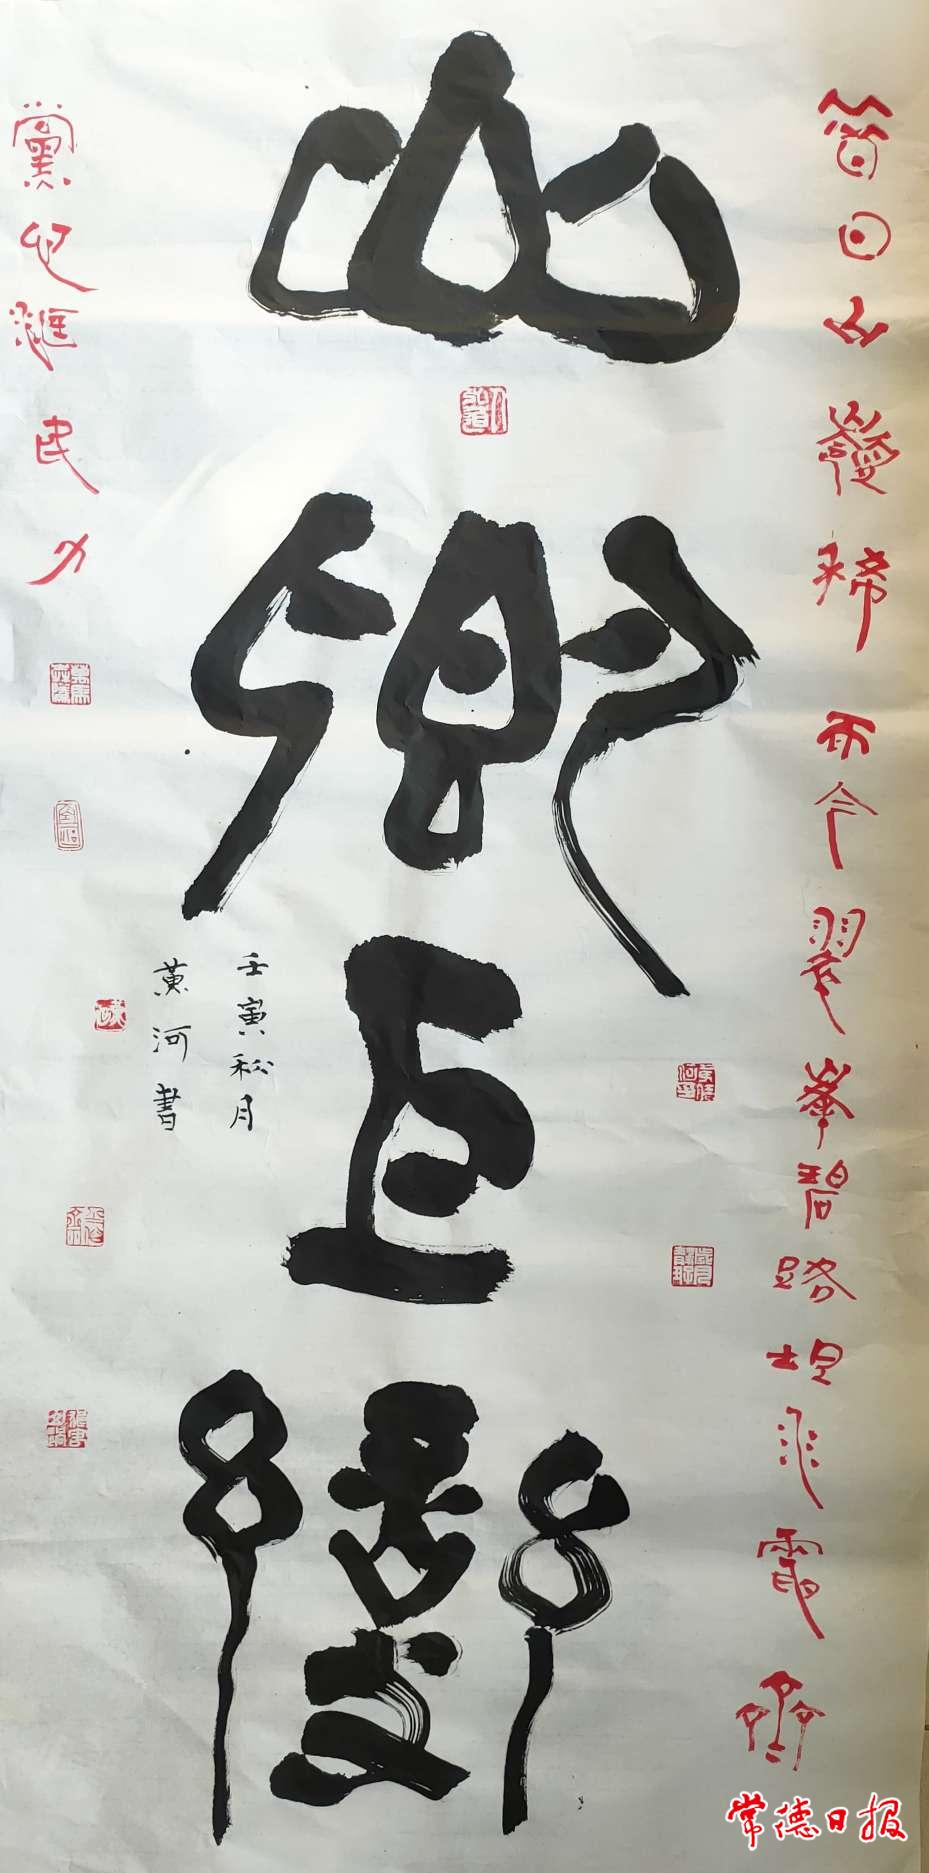 昔日山嶺稀而今翠峯碧路坦飛電齊
山鄉巨變
壬寅秋月
黃河書
黨心滙民力
常德日报